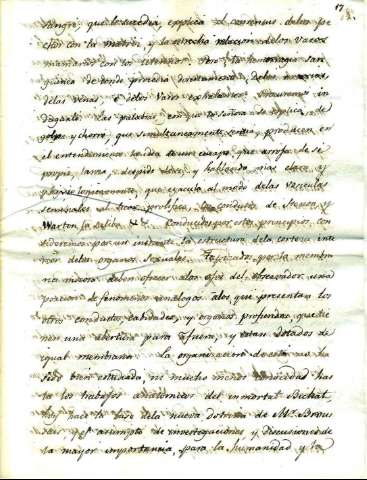 17
sangre, que lo sucedia explica el consensus de los pe-
chos con la matriz, y la estrecha relacion de los vasos
mamarios con los uterinos. Pero la hemorragia san-
guinea de donde procedia de las
de las venas, ó de los vasos exhalantes. Procuremos in-
dagarlo. Las palabras, con que la Señora lo esplica, de
golpe y chorro, que simultaneamente producen en
el entendimiento la idea de un cuerpo, que arroja de sí
propio, lanza, despide lexos; y hablando mas claro, y
phisiologicamente, que ejacula al modo de las vesiculas
seminales el licor prolífico, los conductos de Stenon, y
Warton la saliva &c. Conducidos por estos principios, con-
sideremos por un instante la estructura de la corteza inte-
rior de los organos sexuales. Tapizados por la membra-
na mucosa deben ofrecer a los ojos del observador una
porcion de fenomenos análogos a los que presentan los
otros conductos, cabidades, y organos profundos, que tie-
nen una abertura para afuera, y estan dotados de
igual membrana. La organizacion de esta no ha
sido bien estudiada, ni mucho menos conocida has-
ta los trabajos anatomicos del inmortal Bichat,
hoy hace la base de la nueva doctrina de Mr. Brous-
sais, y el asumpto de investigaciones, y discusiones de
la mayor importancia para la humanidad y la